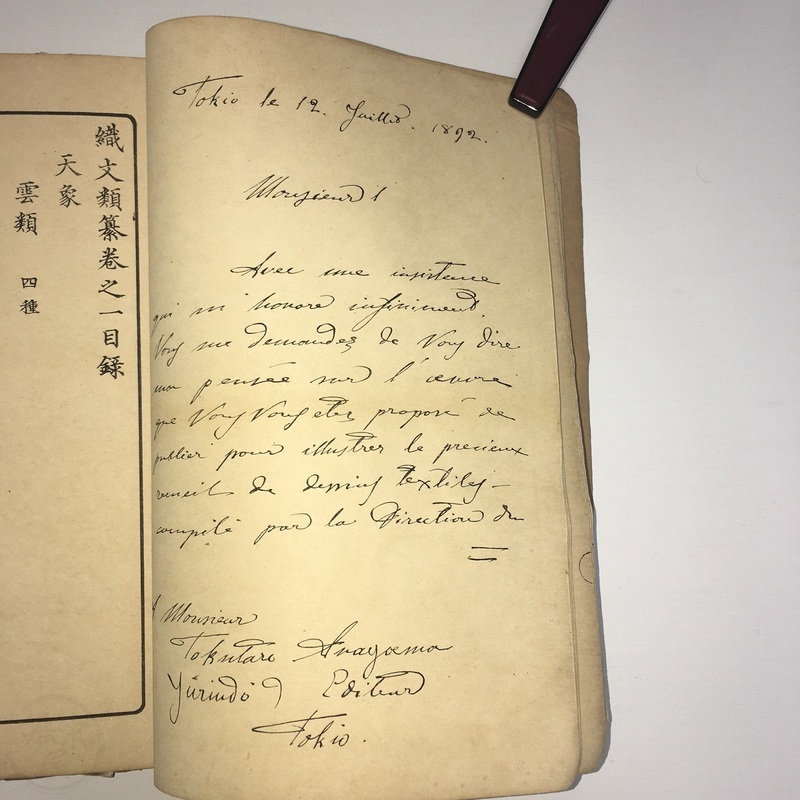 織文類纂卷之一目錄
天象
雲類 四種
Tokio le 12. Juillet. 1892.
Monsieur!
Avec une insistence
qui m'honore infiniment,
Vous me demandez de Vous dire
mon pensée sur l'œuvre
que Vous Vous etes proposé de
publier pour illustrer le precieux
recueil de dessins textiles
compilé par la Direction du
Monsieur
Tokutaro
Yûrindô Editeur
Tokio.